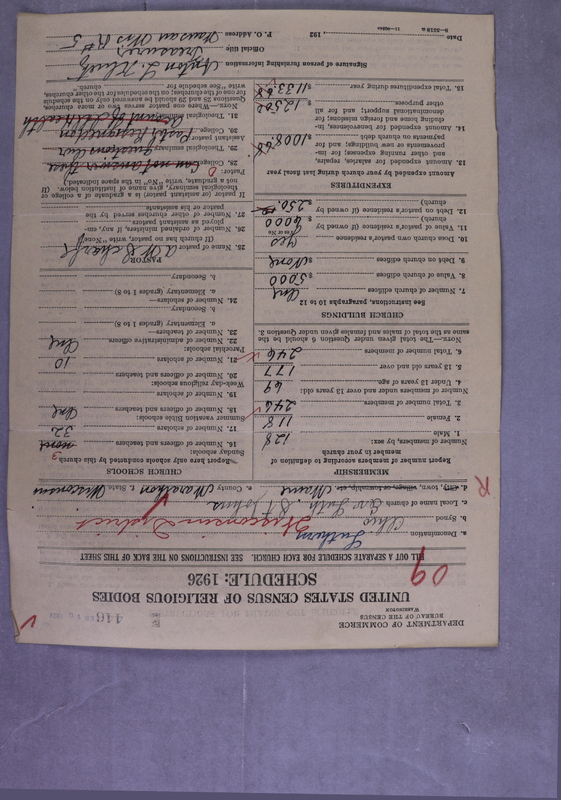 DEPARTMENT OF COMMERCE
BUREAU OF THE CENSUS
WASHINGTON
446
UNITED STATES CENSUS OF RELIGIOUS BODIES
SCHEDULE: 1926
09
FILL OUT A SEPARATE SCHEDULE FOR EACH CHURCH. SEE INSTRUCTIONS ON THE BACK OF THIS SHEET
a. Denomination Lutheran
b. Synod Ohio Wisconsin District
c. Local name of church Ev. Luth. St Johns
d. City, town, village, or township, etc. Maine e. County Marathon f. State Wisconsin
R
MEMBERSHIP
Report number of members according to definition of member in your church
Number of members, by sex:
1. Male 128
2. Female 118
3. Total number of members 246
Number of members under and over 13 years old:
4. Under 13 years of age 69
5. 13 years old and over 177
6. Total number of members 246
NOTE.—The total given under Question 6 should be the same as the total of males and females given under Question 3.
CHURCH BUILDINGS
See instructions, paragraphs 10 to 12
7. Number of church edifices One
8. Value of church edifices $ 5000
9. Debt on church edifices $ None
10. Does church own pastor's residence yes
Yes or No
11. Value of pastor's residence (if owned by church) $ 6000
12. Debt on pastor's residence (if owned by church) $ 250.
EXPENDITURES
Amount expended by your church during last fiscal year
13. Amount expended for salaries, repairs, and other running expenses; for improvements or new buildings; and for payments on church debt $ 1008.68
14. Amount expended for benevolences, including home and foreign missions; for denominational support; and for all other purposes $ 125.02
15. Total expenditures during year $ 1133.68
CHURCH SCHOOLS
Report here only schools conducted by this church
Sunday schools:
16. Number of officers and teachers none 3
17. Number of scholars 32
Summer vacation Bible schools:
18. Number of officers and teachers One
19. Number of scholars
Weekday religious schools:
20. Number of officers and teachers
21. Number of scholars 10
Parochial schools:
22. Number of administrative officers One
23. Number of teachers—
a. Elementary (grades 1 to 8)
b. Secondary
24. Number of scholars—
a. Elementary (grades 1 to 8)
b. Secondary
PASTOR
25. Name of pastor
(If church has no pastor, write "None")
26. Number of other ordained ministers, if any, employed as assistant pastors
27. Number of other churches served by the pastor or his assistants
If pastor (or assistant pastor) is a graduate of a college, or theological seminary, give name of institution below. (If not a graduate, write "No" in the space indicated.)
Pastor:
28. College Can not answer these
29. Theological seminary questions our
Assistant pastor:
30. College Pastor Resigned on
31. Theological seminary
NOTE.—When one pastor serves two or more churches, Questions 25 and 28 should be answered only on the schedule for one of the churches; on the schedules for the other churches, write "See schedule for church."
Signature of person furnishing information
Official title Treasurer
P. O. Address Wausau Wis R# 5
Date , 192